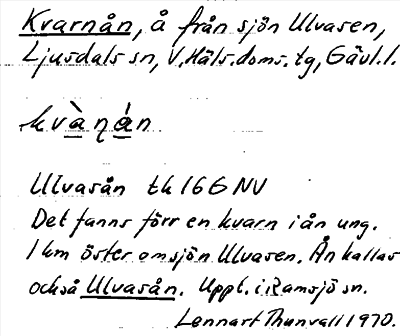 Kvarnån, å från sjön Ulvasen,
Ljusdals sn, V. Häls. doms. tg, Gävl. l.
kvànán
Ulvasån tk 16G NV
Det fanns förr en kvarn i ån ung.
1 km öster om sjön Ulvasen. Ån kallas
också Ulvasån. Uppt. i Ramsjö sn.
Lennart Thunvall 1970.